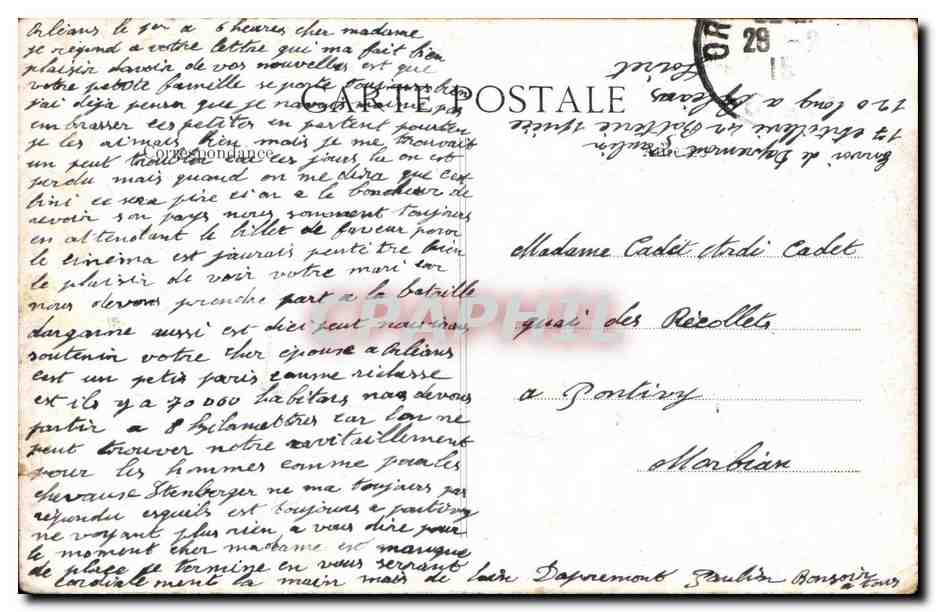 Orléans le 1er a 6 heures cher madame
je répond a votre lettre qui ma fait bien
plaisir davoir de vos nouvelles est que
votre petite famille se porte toujours bien
j'ai déja penser que je navais même pas
embrasser ces petites en partent pourtan
je les aimais bien mais je me trouvait
un peut troubler car ces jours la on est
perdu mais quand on me dira que c'est
fini ce sera pire car a le bonheur de
revoir son pays nous somment toujours
en attendant le billet de faveur pour
le cinéma est jaurais peutitre bien
le plaisir de voir votre mari car
nous devons prendre part a la bataille
dargonne aussi est dici peut nous irons
soutenir votre cher épouse a Orléans
cest un petis paris comme richesse
est ils y a 70 000 habitans nous devons
partir a 8 kilamettres car lon ne
peut trouver notre ravitaillement
pour les hommes comme pour les
chevause Stenberger ne ma toujours pas
répondu esquils est toujours a pontivy
ne voyant plus rien a vous dire pour
le moment cher madame est manque
de place je termine en vous serrant
cordialement la main mais de loin Dapremont Paulin Bonsoir
a tous
CARTE POSTALE
Correspondance
OR
29
15
Envoi de Dapremont Paulin
1er artillerie Batterie
120 long a Orléans
Loiret
Madame Cadet Ardi Cadet
quai des Récollets
a Pontivy
Morbian
CPAPHIL